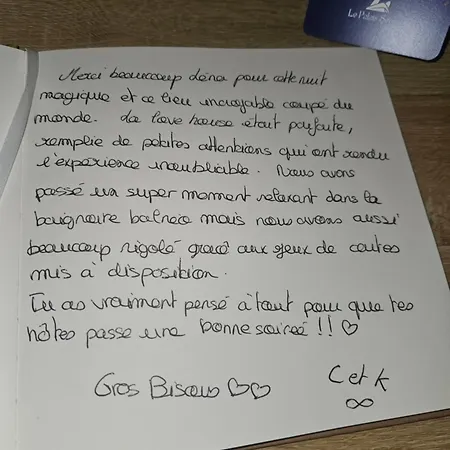 Le Palais
Merci beaucoup Léna pour cette nuit
magique et ce lieu incroyable coupé du
monde. La love house était parfaite,
remplie de petites attentions qui ont rendu
l'expérience inoubliable. Nous avons
passé un super moment relaxant dans la
baignoire balnéo mais nous avons aussi
beaucoup rigolé grace aux jeux de cartes
mis à disposition.
Tu as vraiment pensé à tout pour que tes
hôtes passe une bonne soirée !! ♡
Gros Bisous ♡♡
C et K
∞